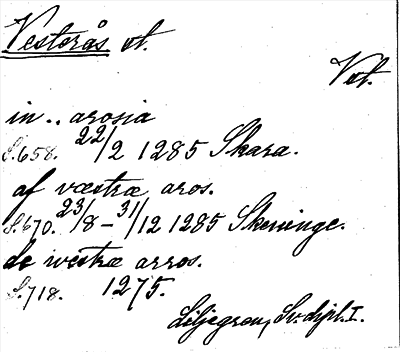 Vesterås st.
Vst.
in .. arosia
S. 658. 22/2 1285 Skara.
af væstræ aros.
S. 670. 23/8 – 31/12 1285 Skeninge.
de westræ arros.
S. 718. 1275.
Liljegren, Sv. dipl. I.